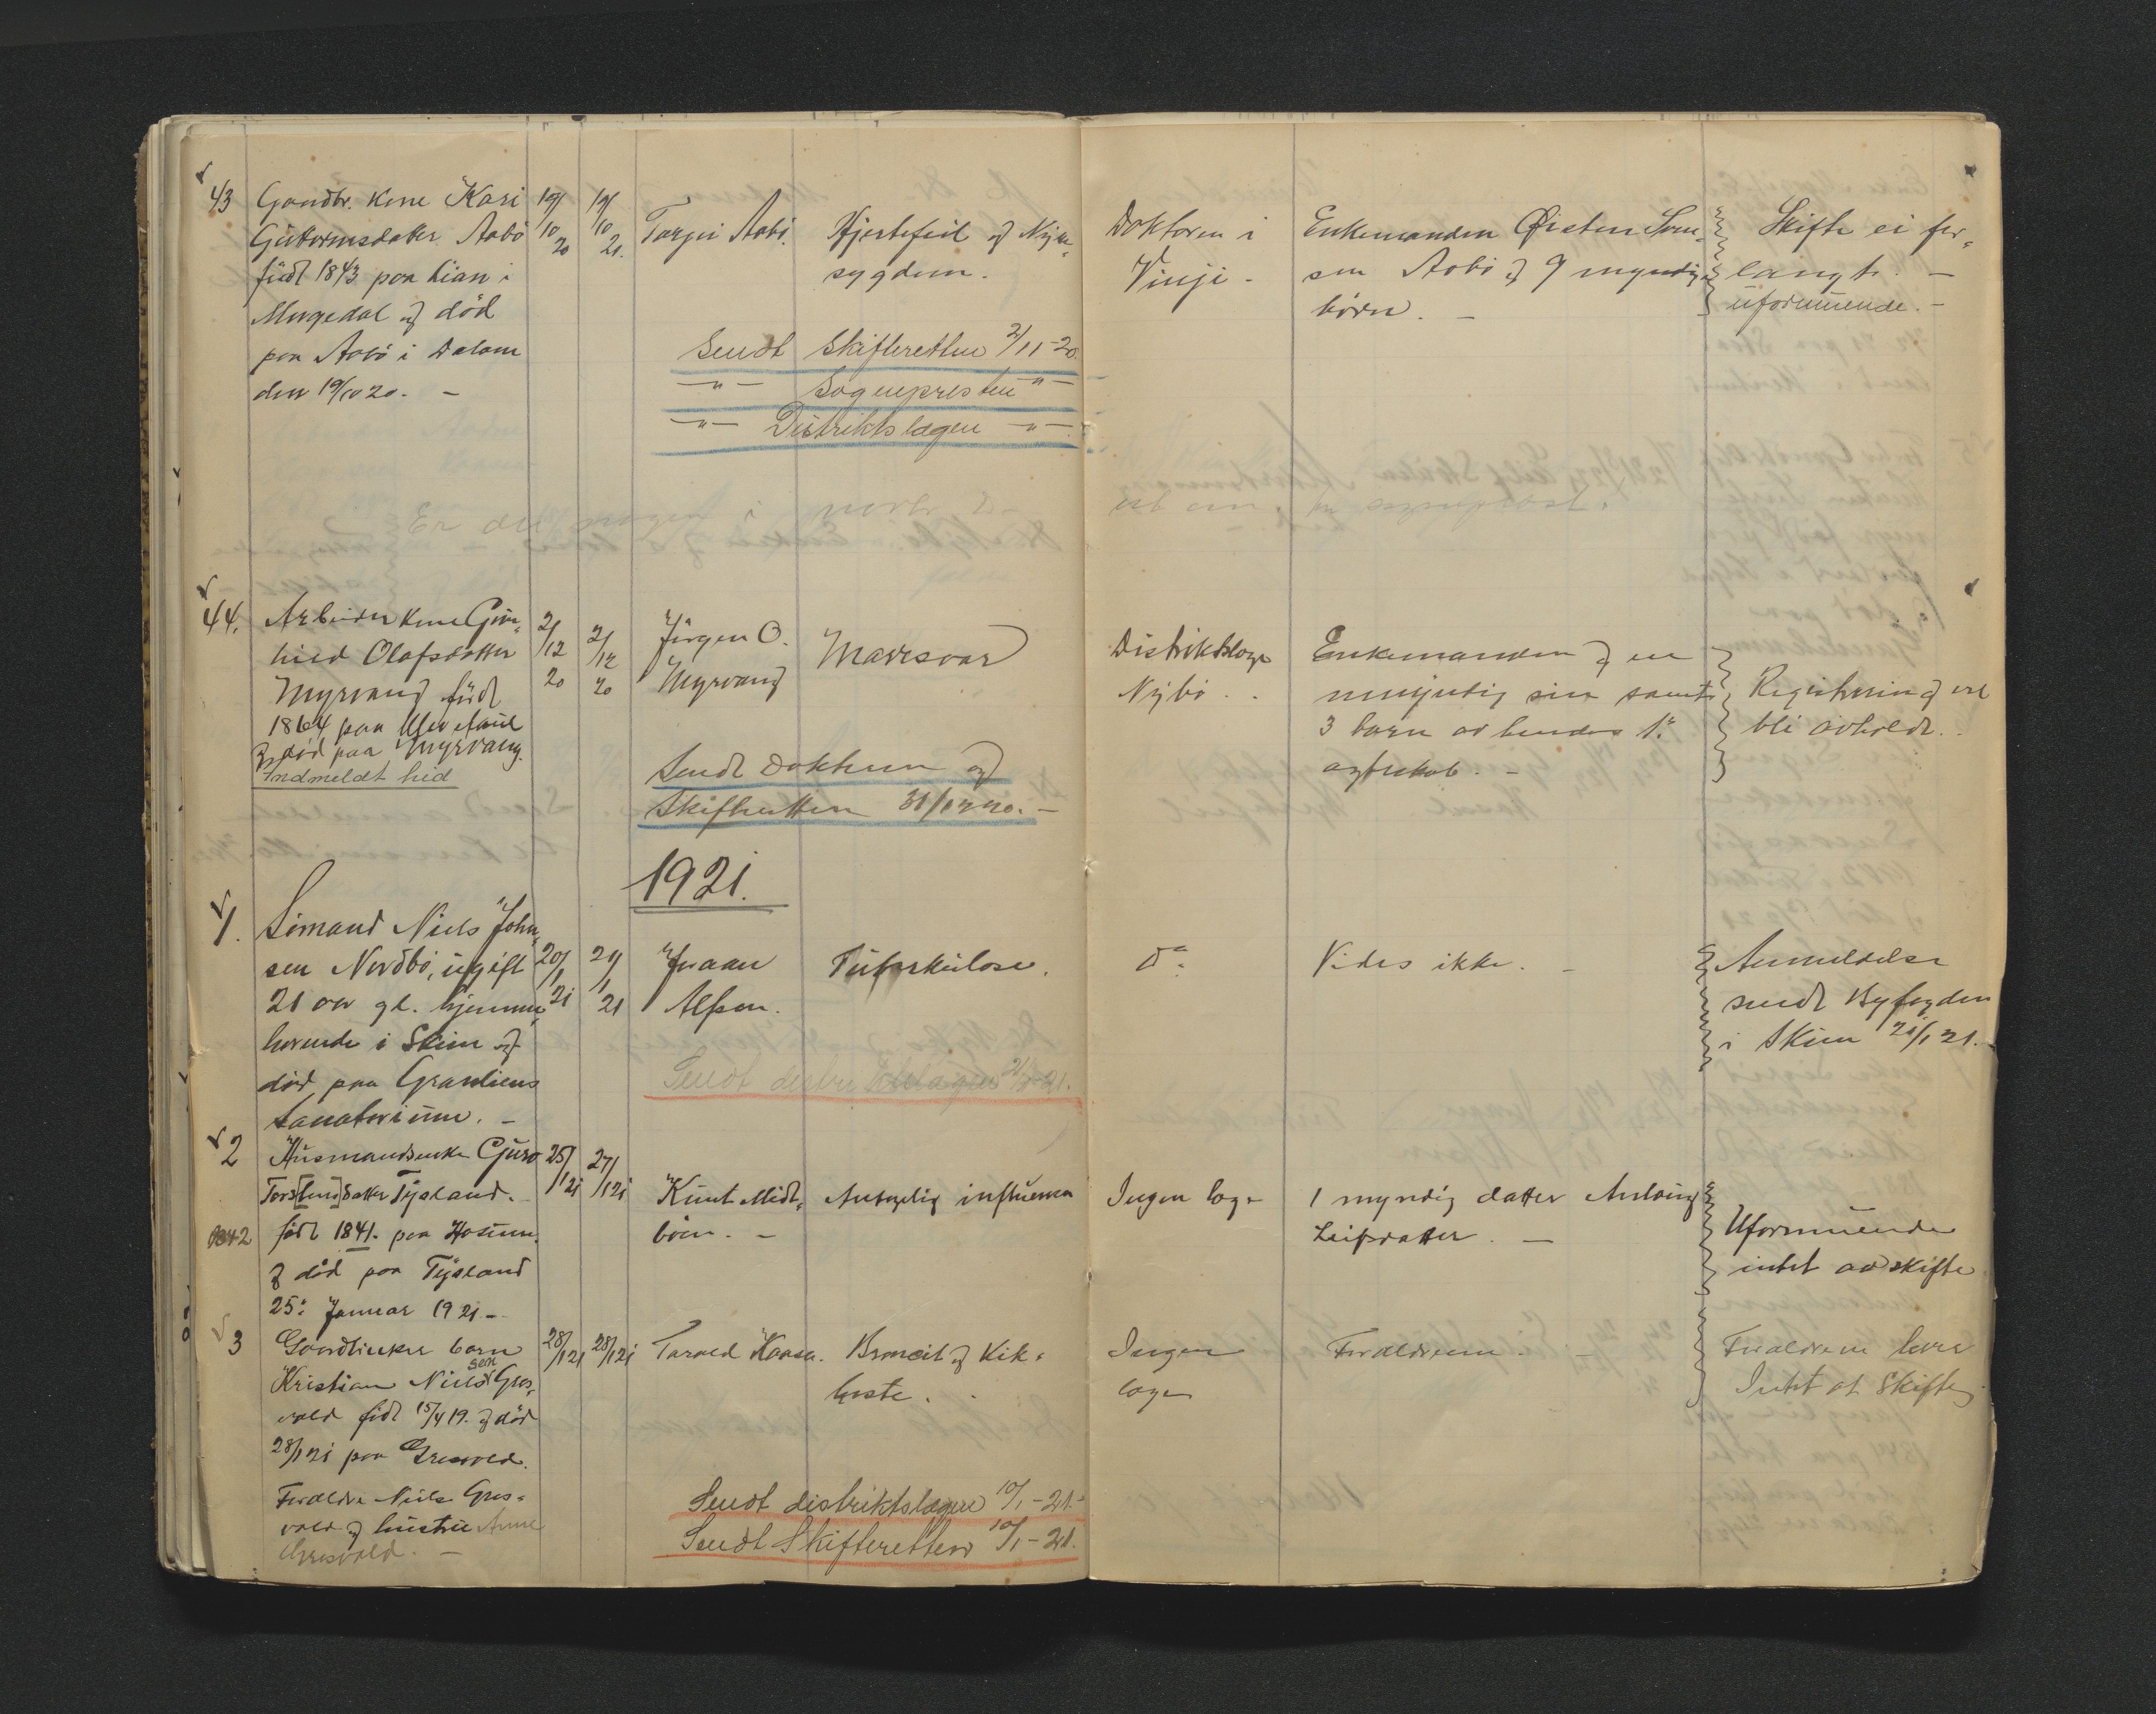 43
Gaardbr. kone Kari
Guttormsdatter Aabö
født 1843 paa Lian i
Morgedal og död
paa Aabö i Dalane
den 19/10 20. -
19/10 20
19/10 20.
Targei Aabö.
Hjertefeil og Nyre-
sygdom.
Doktoren i
Vinje -
Enkemanden Øisten
sen Aabö og 9 myndige
börn. -
Skifte ei for-
langt. -
uformuende. -
Sendt Skifteretten 2/11-20.
-"- Sognepresten -"-
-"- Distriktslægen -"-
Er det nogen i
44.
Arbeider kone Gun-
hild Olafsdatter
Myrvang född
1864 paa
og död paa Myrvang.
Indmeldt hid
2/12 20
2/12 20
Jörgen O.
Myrvang
Mavesaar
Distriktslæge
Nybö.
Enkemanden og en
umyndig sön samt
3 barn av hendes 1ste
egteskab. -
Registrering vil
bli avholdt.
Sendt Doktoren og
Skifteretten 31/12 20. -
1921.
1.
Sömand Niels John-
sen Nordbö, ugift
21 aar gl. hjemme-
hörende i Skien og
död paa Granliens
Sanatorium. -
20/1 21
21/1 21
Jraan
Alfsen.
Tuberkulose.
do.
Vides ikke. -
Anmeldelse
sendt Byfogden
i Skien 21/1 21.
Sendt distriktslægen
2
Husmandsenke Guro
Tors[tens]datter Tysland.
1842
född 1841. paa
og död paa Tysland
25de Januar 1921. -
25/1 21
27/1 21
Knut Midt-
böen. -
Antagelig influensa
Ingen læge
1 myndig datter
Leifsdatter. -
Uformuende
intet at skifte
3
Gaardbruker barn
Kristian Nielssen Gres-
vold född 15/4 19. og död
28/1 21 paa Gresvold.
Foraldre Niels Gres-
vold og hustru Anne
Gresvold. -
28/1 21
28/1 21
Tarald Kaasa.
Broncit og Kik-
hoste.
Ingen
læge
Foraldrene. -
Foraldrene lever
Intet at Skifte
Sendt distriktslægen 10/1-21.
Sendt Skifteretten 10/1-21.